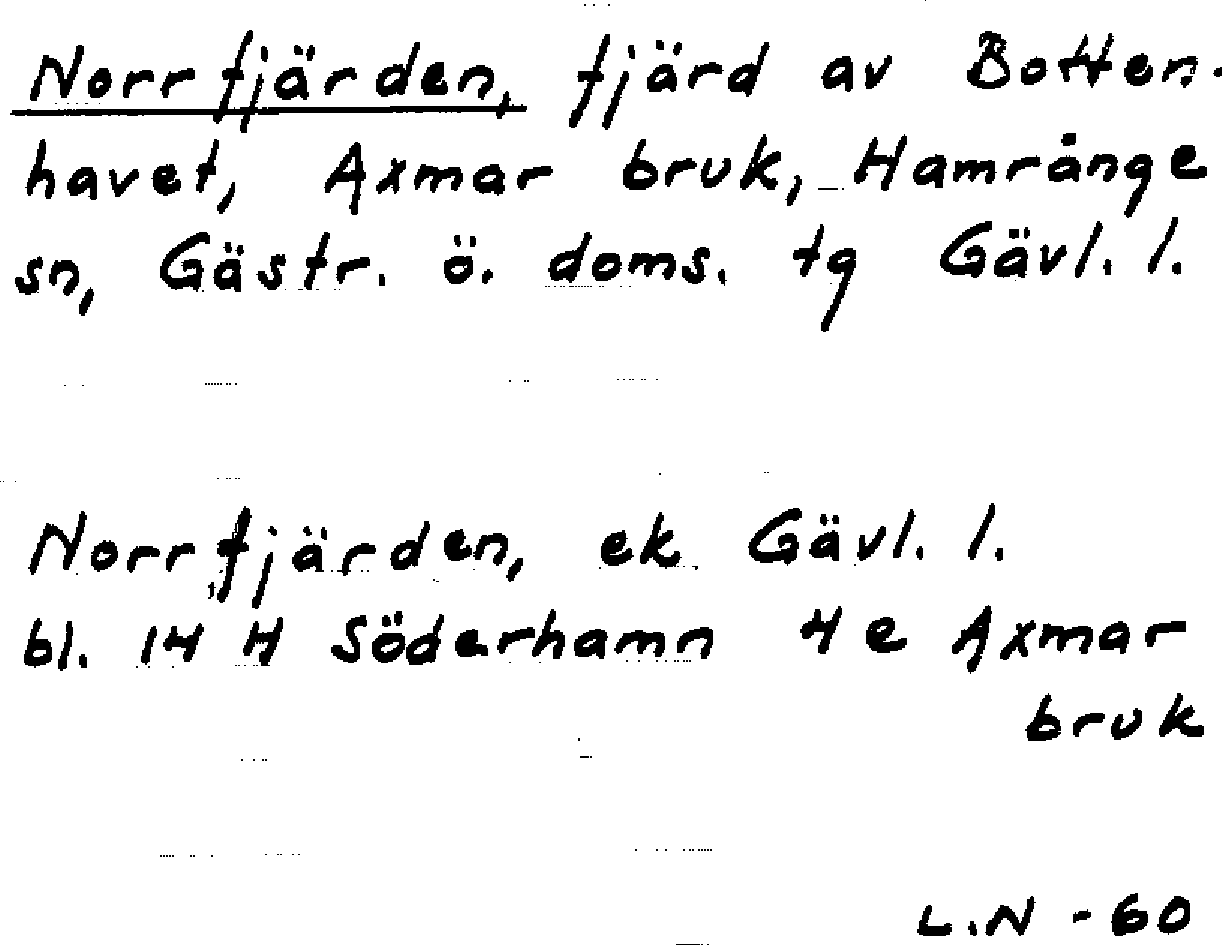 Norrfjärden, fjärd av Botten-
havet, Axmar bruk, Hamrånge
sn, Gästr. ö. doms. tg Gävl. l.
Norrfjärden, ek Gävl. l.
bl. 14 H Söderhamn 4 e Axmar
bruk
L.N - 60